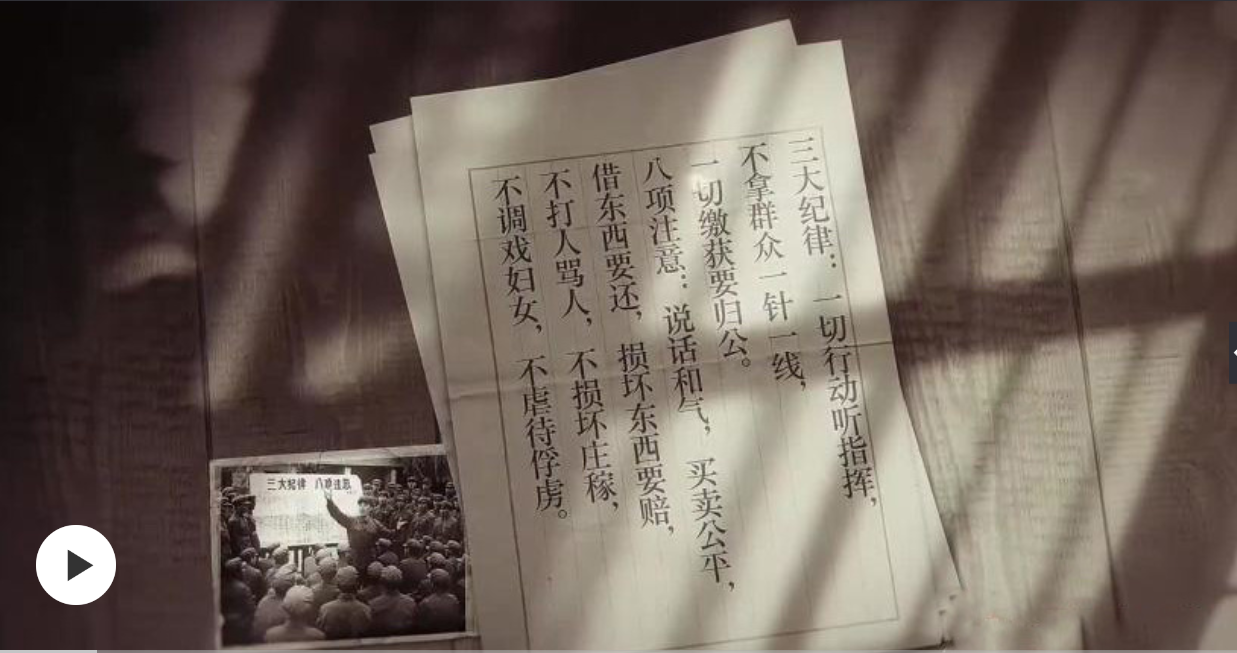 三大纪律：一切行动听指挥，
不拿群众一针一线，
一切缴获要归公。
八项注意：说话和气，买卖公平，
借东西要还，损坏东西要赔，
不打人骂人，不损坏庄稼，
不调戏妇女，不虐待俘虏。
三大纪律 八项注意